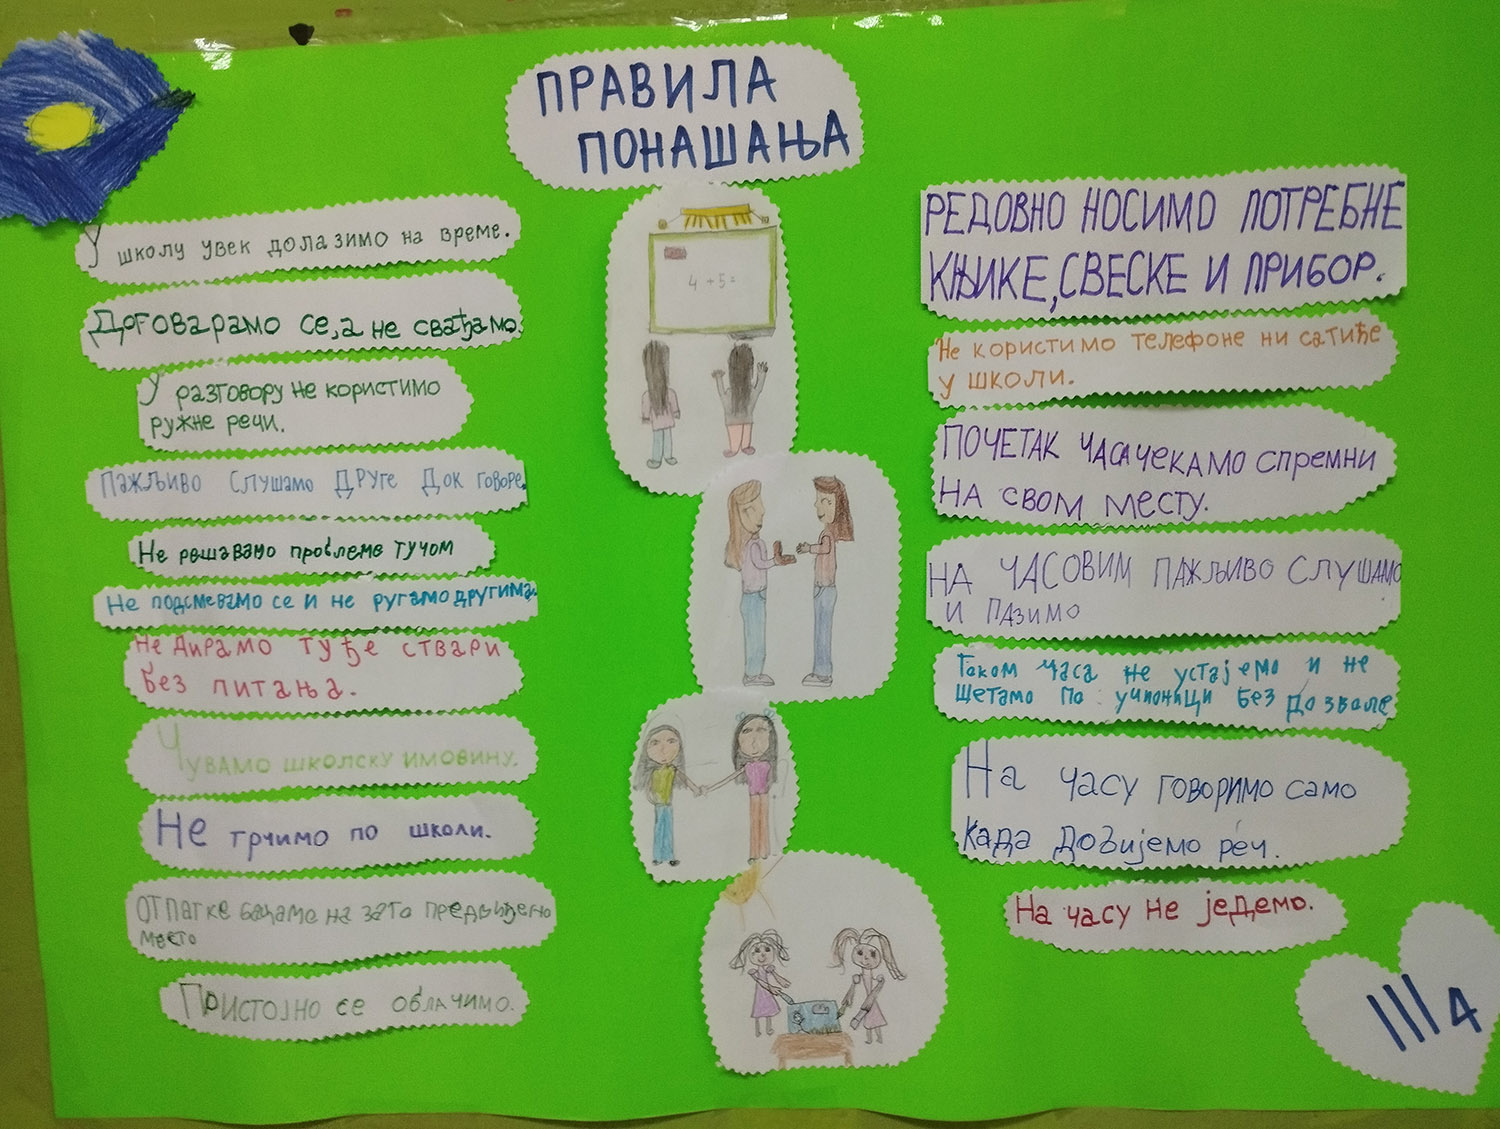 ПРАВИЛА
ПОНАШАЊА
У школу увек долазимо на време.
Договарамо се, а не свађамо.
У разговору не користимо
ружне речи.
Пажљиво Слушамо ДРУге Док говоре.
Не решавамо проблеме тучом
Не подсмевамо се и не ругамо другима.
Не дирамо туђе ствари
без питања.
Чувамо школску имовину.
Не трчимо по школи.
Отпатке бацамо на за то предвиђено
место
Пристојно се облачимо.
4 + 5 =
РЕДОВНО НОСИМО ПОТРЕБНЕ
КЊИКЕ, СВЕСКЕ И ПРИБОР.
Не користимо телефоне ни сатиће
у школи.
ПОЧЕТАК ЧАСА ЧЕКАМО СПРЕМНИ
НА СВОМ МЕСТУ.
НА ЧАСОВИМ ПАЖЉИВО СЛУШАМО
И ПАЗИМО
Током часа не устајемо и не
шетамо по учионици без дозволе
На часу говоримо само
када добијемо реч.
На часу не једемо.
III 4